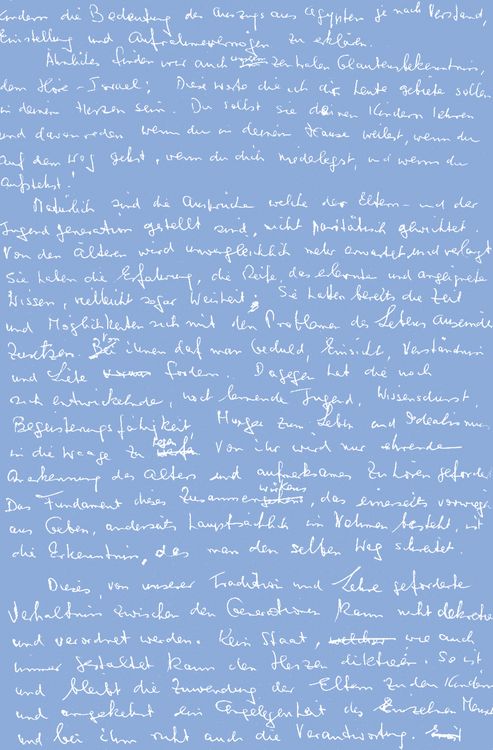 Kindern die Bedeutung des Auszugs aus Ägypten je nach Verstand,
Einstellung und Aufnahmevermögen zu erklären.
Ähnliches finden wir auch im zentralen Glaubensbekenntnis,
dem Höre-Israel; Diese Worte die ich dir heute gebiete sollen
in deinem Herzen sein. Du sollst sie deinen Kindern lehren
und davon reden wenn du in deinem Hause weilest, wenn du
auf dem Weg gehst, wenn du dich niederlegst, und wenn du
aufstehst!
Natürlich sind die Ansprüche welche der Eltern- und der
Jugendgeneration gestellt sind, nicht paritätisch gewichtet.
Von den Älteren wird unvergleichlich mehr erwartet und verlangt
Sie haben die Erfahrung, die Reife, das erlernte und angeeignete
Wissen, vielleicht sogar Weisheit. Sie hatten bereits die Zeit
und Möglichkeiten sich mit den Problemen des Lebens auseinander
zusetzen. Bei ihnen darf man Geduld, Einsicht, Verständnis
und Liebe fordern. Dagegen hat die noch
sich entwickelnde, noch lernende Jugend, Wissensdurst,
Begeisterungsfähigkeit Hunger zum Leben und Idealismus
in die Waage zu legen. Von ihr wird nur ehrende
Anerkennung des Alters und aufmerksames Zuhören gefordert
Das Fundament dieses Zusammenwirkens, das einerseits vorwiegend
aus Geben, anderseits hauptsächlich im Nehmen besteht, ist
die Erkenntnis, das man den selben Weg schreitet.
Dieses, von unserer Tradition und Lehre geforderte
Verhältnis zwischen den Generationen kann nicht dekretiert
und verordnet werden. Kein Staat, welcher wie auch
immer gestaltet kann den Herzen diktieren. So ist
und bleibt die Zuwendung der Eltern zu den Kindern
und umgekehrt ein Angelegenheit des einzelnen Menschen
und bei ihm ruht auch die Verantwortung.